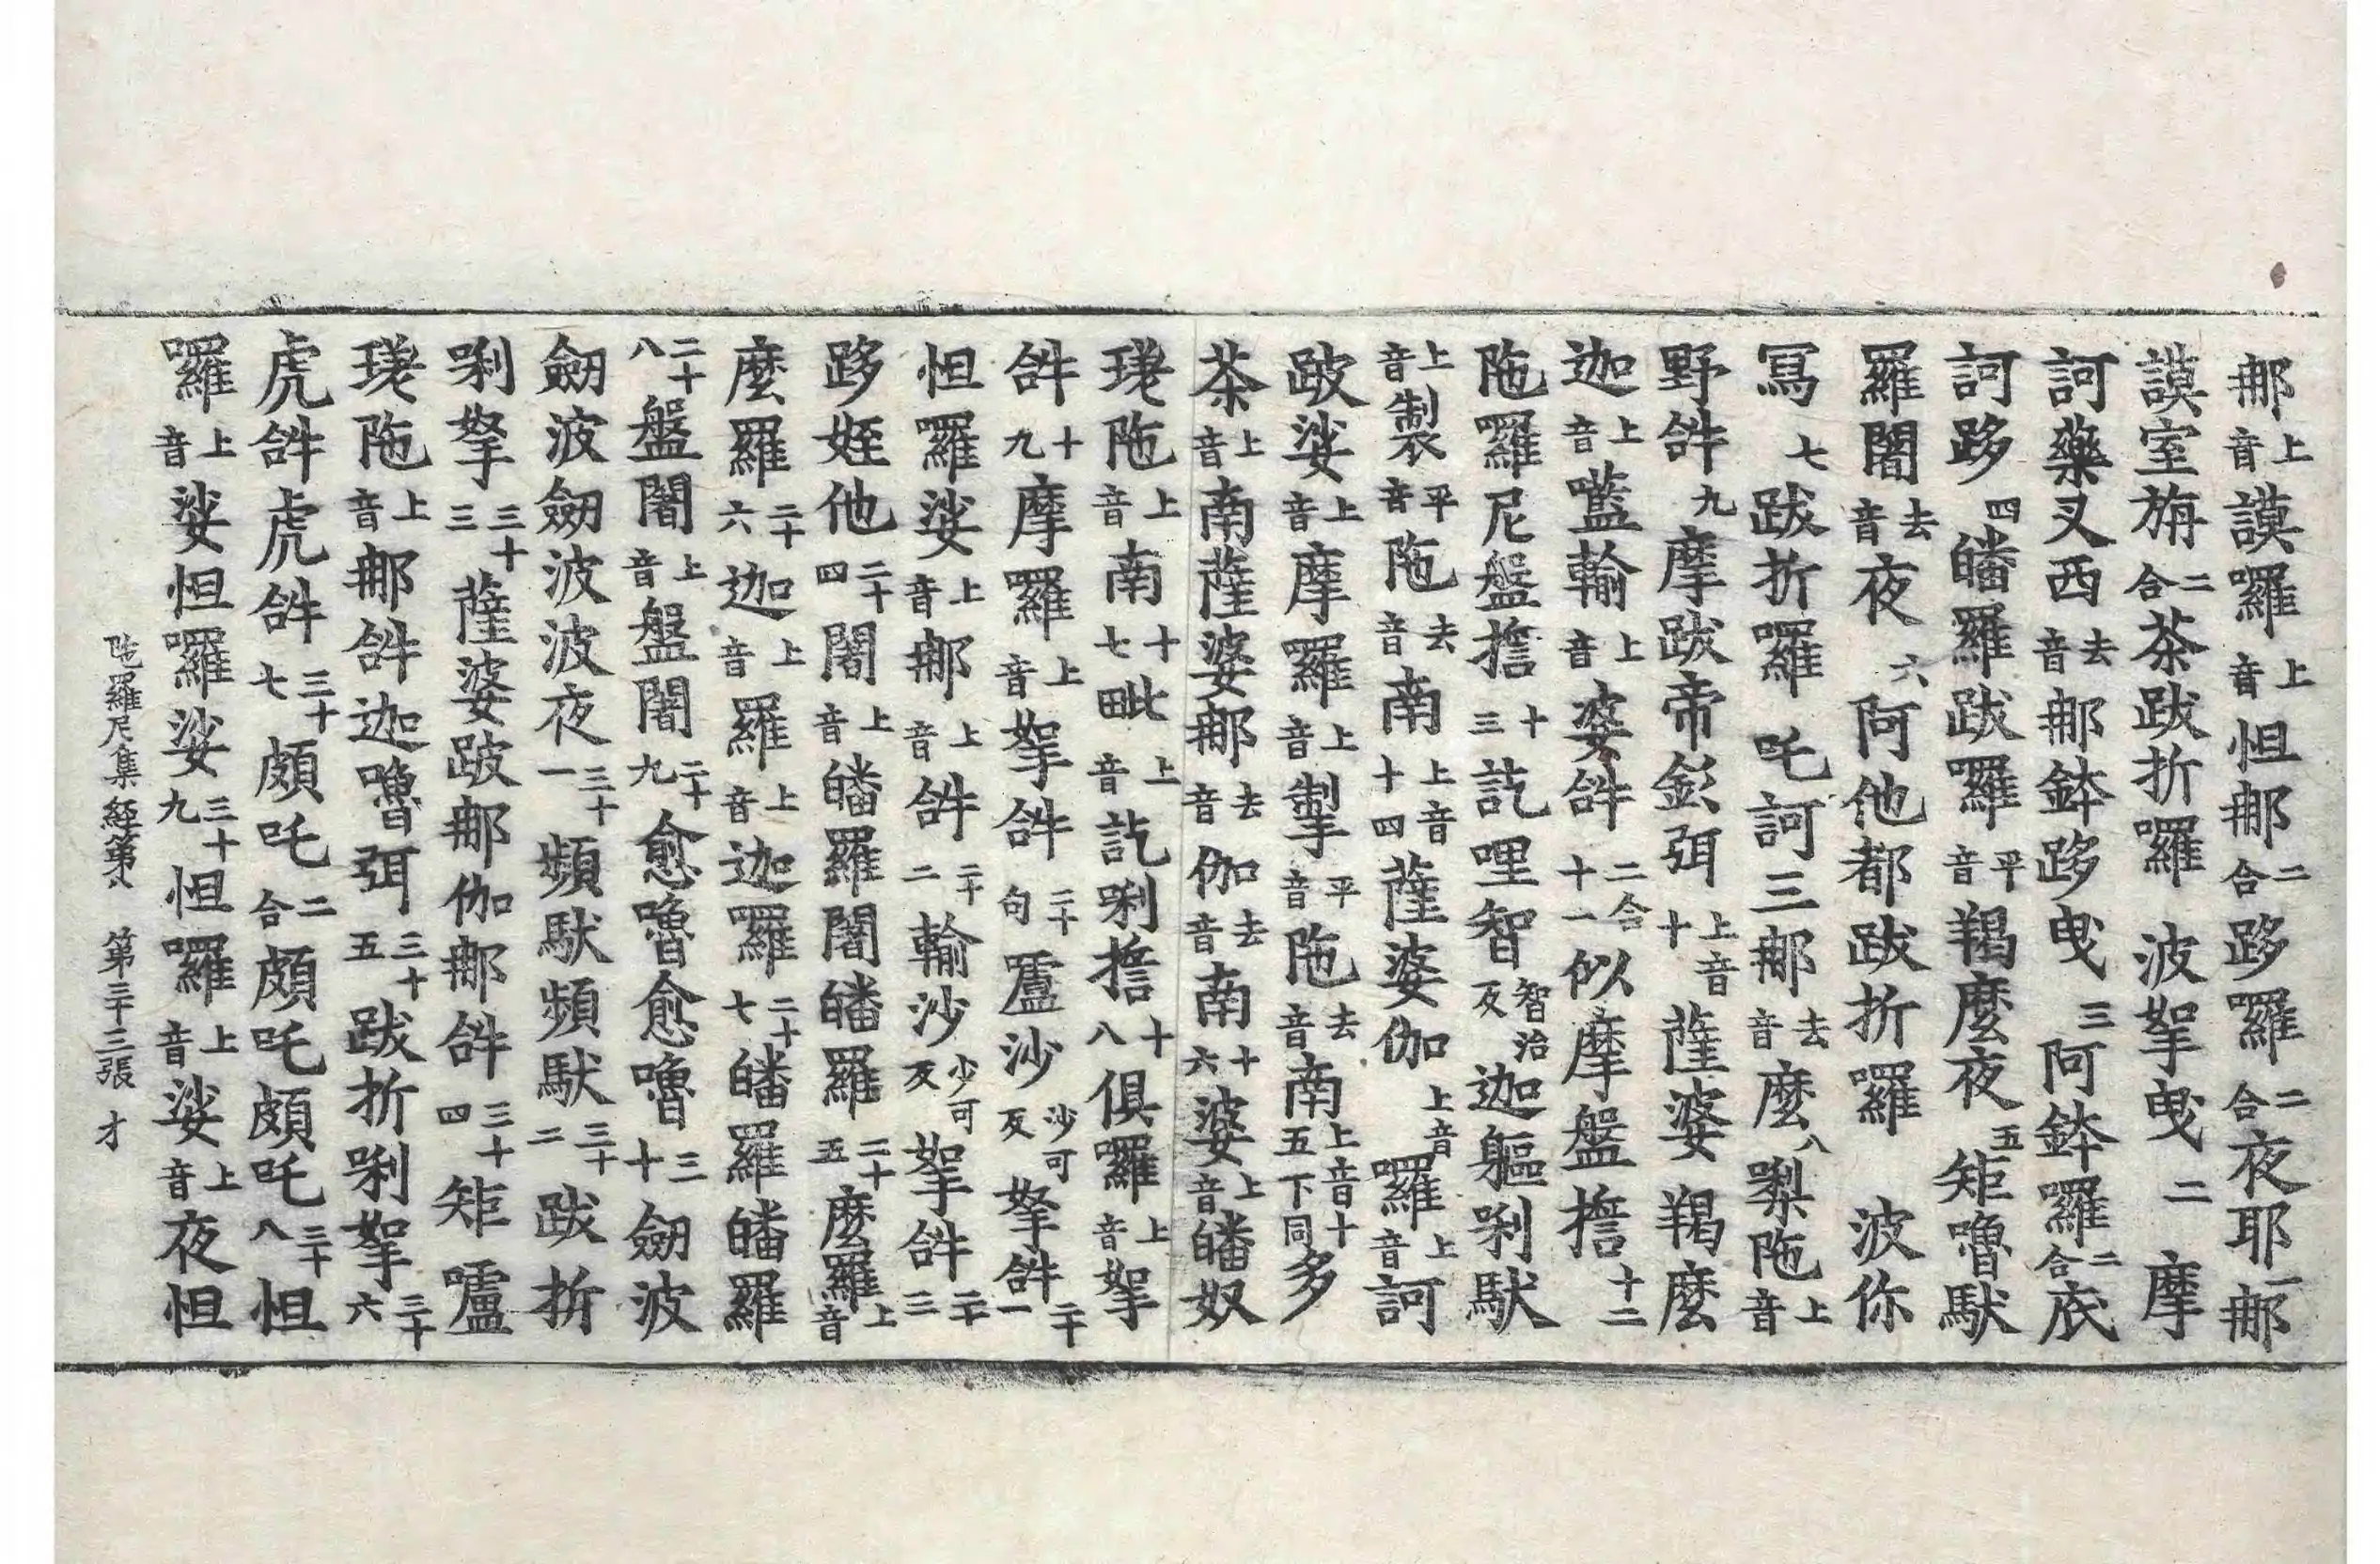 那上音謨囉上音怛那二合跢羅二合夜耶一那
謨室旃二合茶跋折囉波拏曳二摩
訶藥叉西去音那鉢跢曳三阿鉢羅二合底
訶跢四皤羅跋囉平音羯麼夜五矩嚕馱
羅闍去音夜六阿他都跋折囉波你
寫七跋折囉吒訶三那去音麼八梨陁上音
野𤙖九摩跋帝𨥨弭上音十薩婆羯麼
迦上音㘕輸上音婆𤙖二合十一似摩盤擔十二
陁羅尼盤擔十三訖哩智智治反迦軀唎馱
上音製平音陁去音南上音十四薩婆伽上音羅上音訶
跛娑上音摩羅上音制平音陁去音南上音十五下同多
茶上音南薩婆那去音伽去音南十六婆上音皤奴
瑳陁上音南十七毗上音訖唎擔十八俱囉上音拏
𤙖十九摩囉上音拏𤙖二十句嚧沙沙可反拏𤙖二十一
怛囉娑上音那上音𤙖二十二輸沙少可反拏𤙖二十三
跢姪他二十四闍上音皤羅闍皤羅二十五麼羅上音
麼羅二十六迦上音羅上音迦羅二十七皤羅皤羅
二十八盤闍上音盤闍二十九愈嚕愈嚕三十劒波
劒波劒波波夜三十一頻馱頻馱三十二跋折
唎拏三十三薩婆跛那伽那𤙖三十四矩嚧
瑳陁上音那𤙖迦嚕弭三十五跋折唎拏三十六
虎𤙖虎𤙖三十七頗吒二合頗吒頗吒三十八怛
囉上音娑怛囉娑三十九怛囉上音娑上音夜怛
陁羅尼集經第八 第三十三張 才